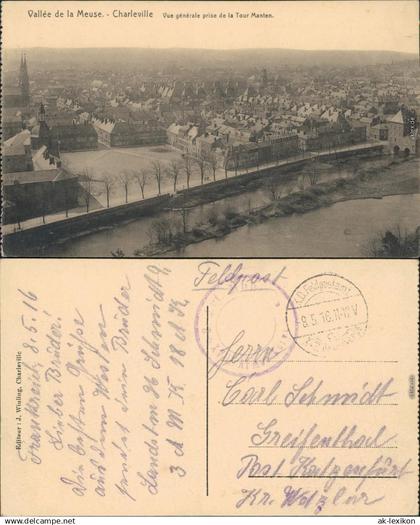 Vallée de la Meuse. - Charleville
Vue générale prise de la Tour Manten.
Editeur : J. Winling, Charleville
Frankreich, 8.5.16
Lieber Bruder!
Die besten Grüße
aus dem Westen
sendet dein Bruder
Landstm H Schmidt
3 d M K 18 d K
Feldpost
K.D. Feldpoststat.
8.5.16. 11-12 V
Herrn
Carl Schmidt
Greifenthal
Post Katzenfurt
Kr. Wetzlar
ak-lexikon